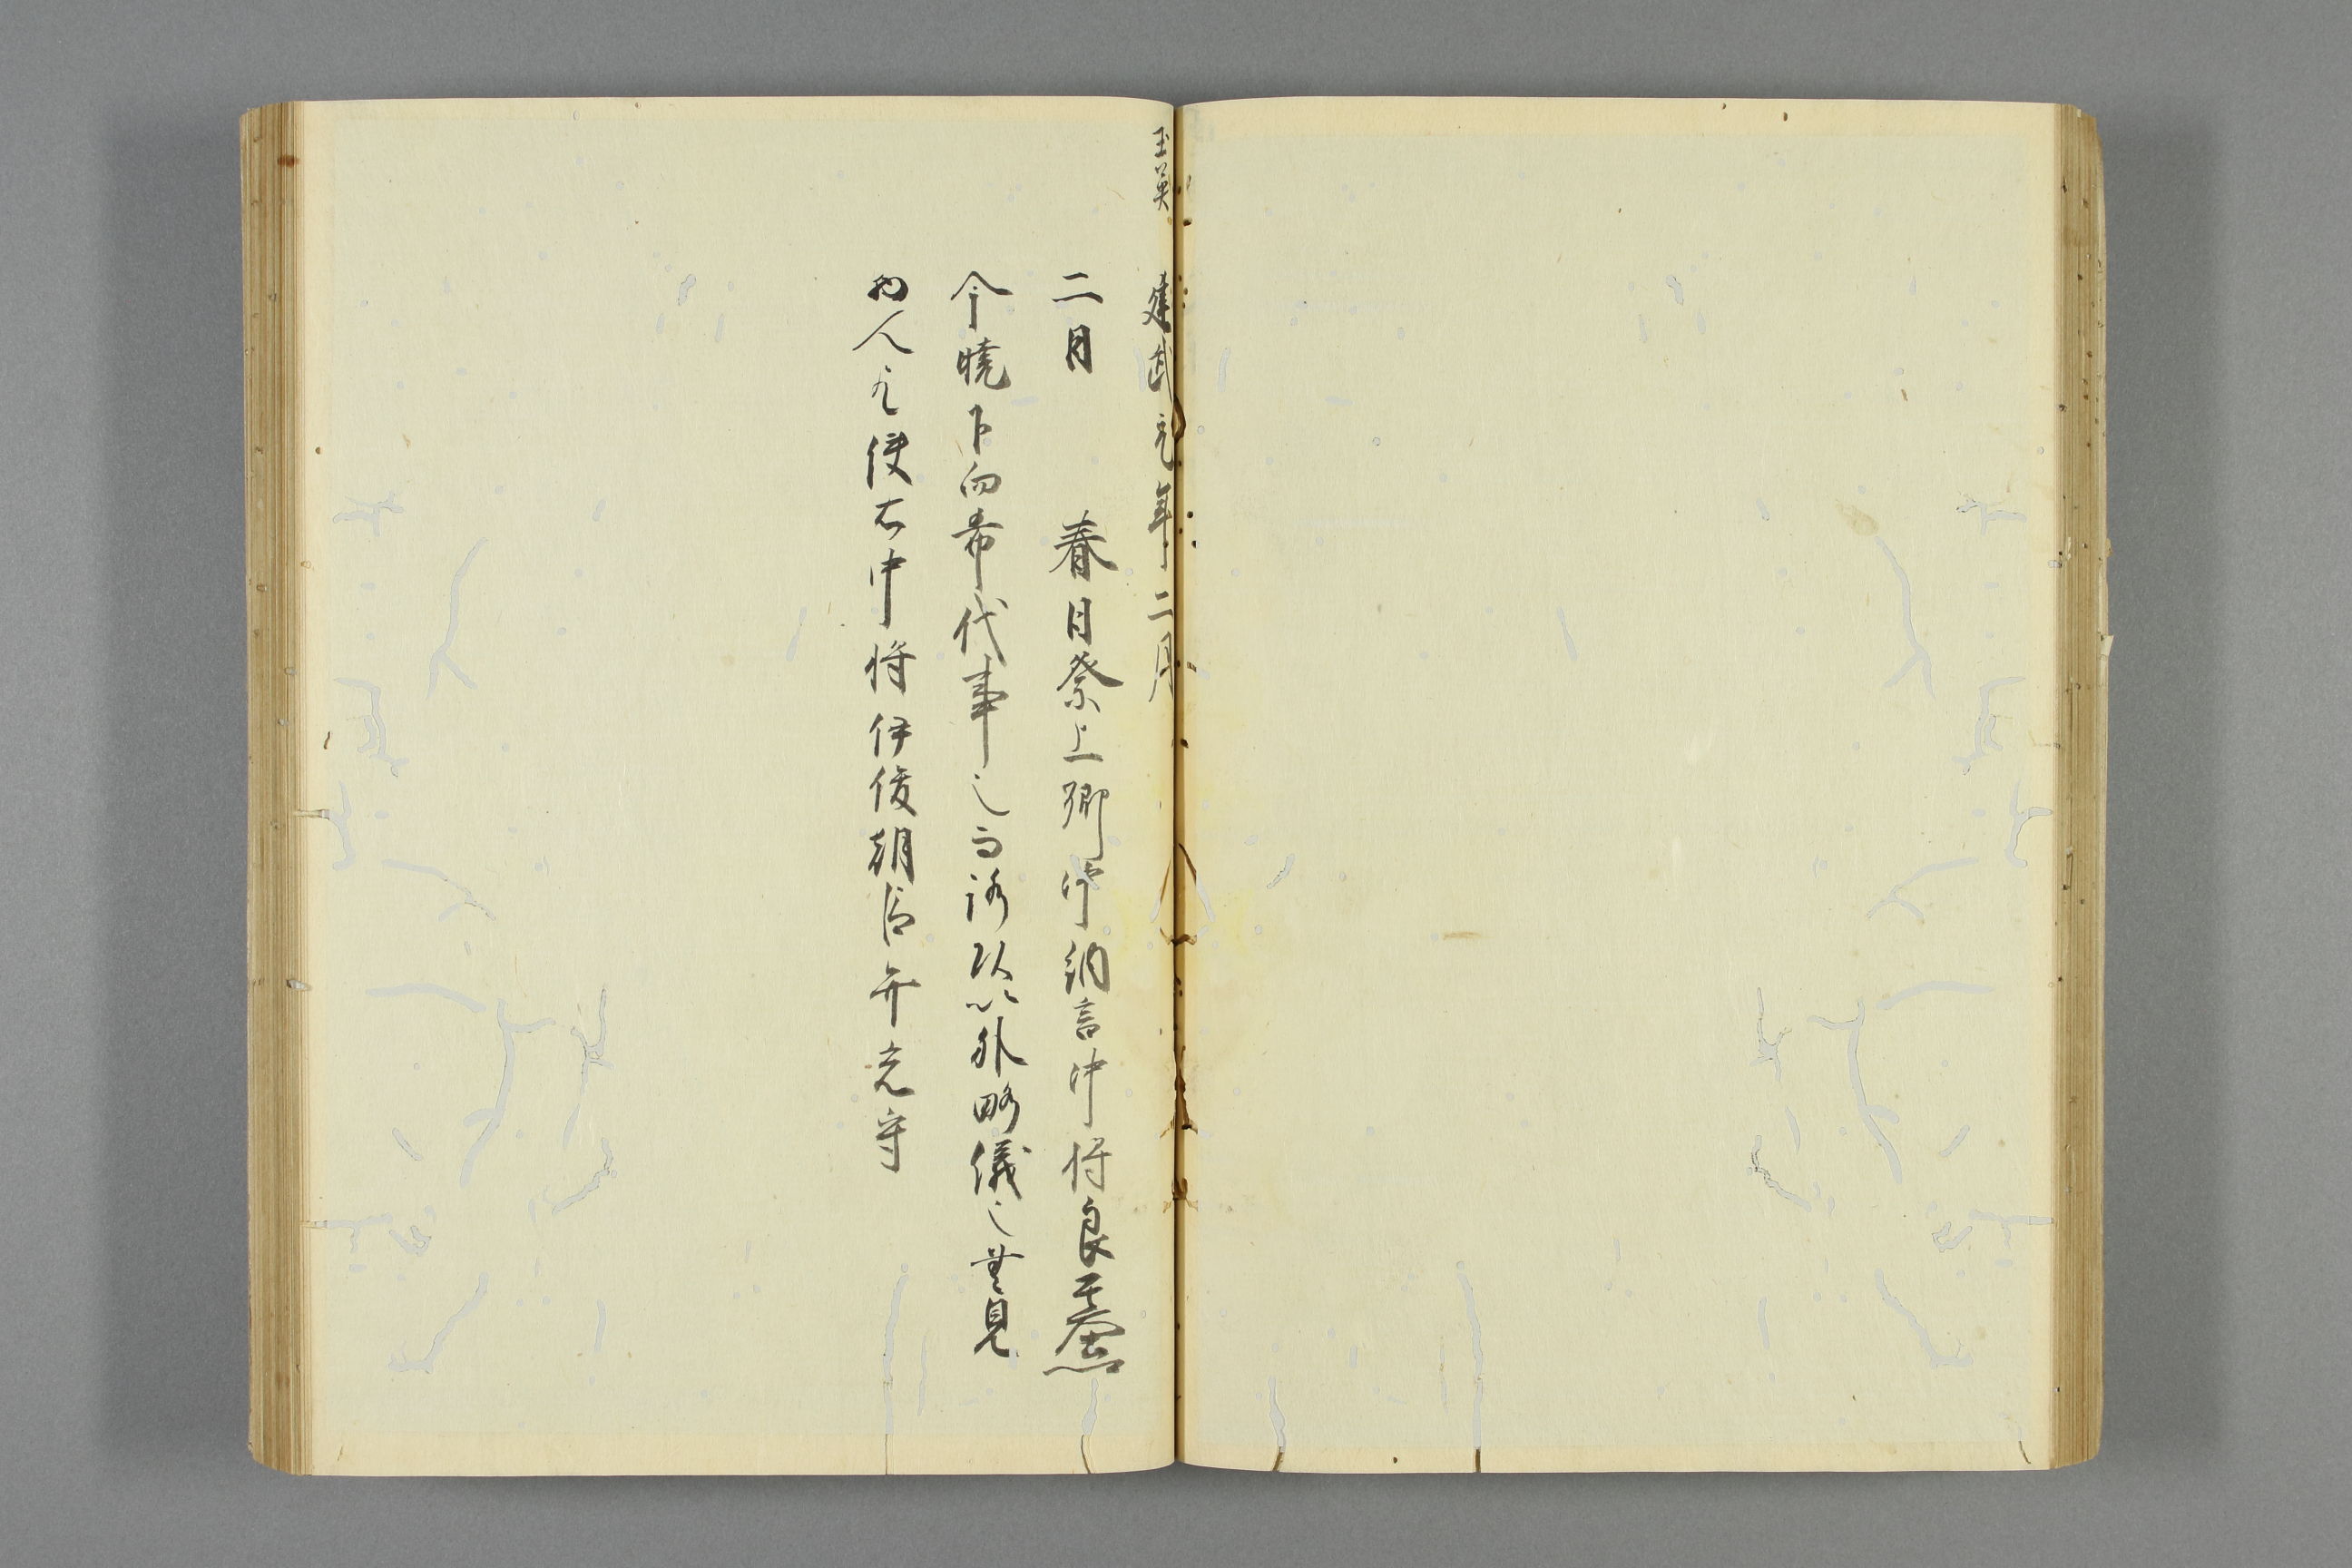 玉英
建武元年二月
二月 春日祭上卿中納言中将良基
今暁下向希代事也 路次以外略儀也無見
物人云使右中将伊俊朝臣弁光守